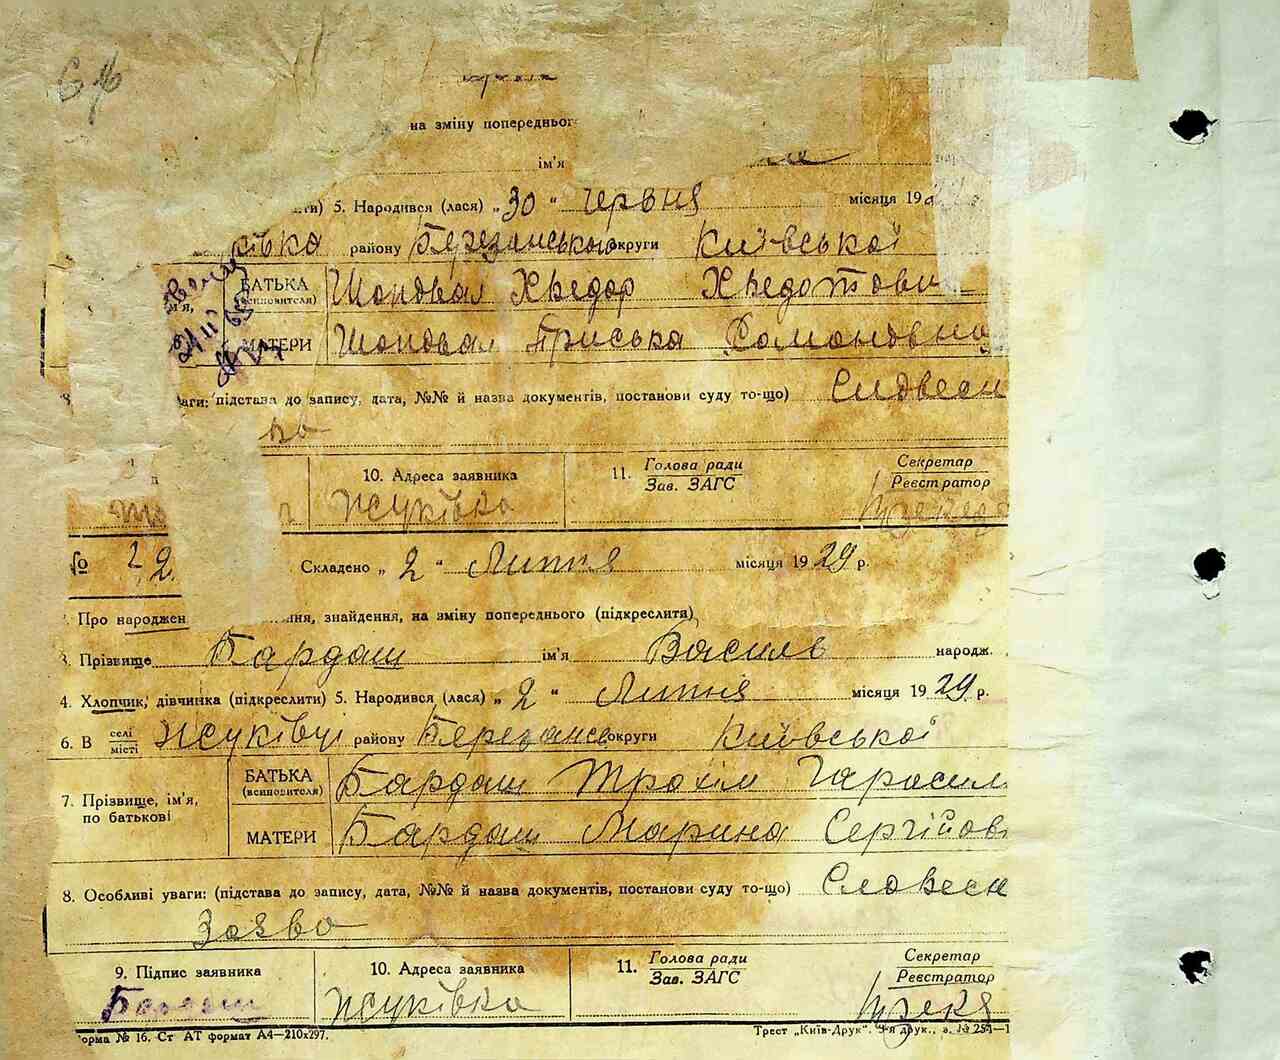 на зміну попередньог
ім'я
ити) 5. Народився (лася) „30" червня місяця 19
ківка району Березанського округи Київської
м'я, БАТЬКА (всиновителя) Шаповал Хведор Хведотови
МАТЕРИ Шаповал Пріська Романовна
ваги: підстава до запису, дата, №№ й назва документів, постанови суду то-що) Словесн
10. Адреса заявника 11. Голова ради Секретар
Зав. ЗАГС Реєстратор
Жуківка
№ 22 Складено „2" Липня місяця 1929 р.
Про народжен ння, знайдення, на зміну попереднього (підкреслити)
3. Прізвище Бардаш ім'я Василь народж.
4. Хлопчик, дівчинка (підкреслити) 5. Народився (лася) „2" Липня місяця 1929 р.
6. В селі місті Жуківці району Березансь округи Київської
7. Прізвище, ім'я, по батькові
БАТЬКА (всиновителя) Бардаш Трохім Гарасим
МАТЕРИ Бардаш Марина Сергійов
8. Особливі уваги: (підстава до запису, дата, №№ й назва документів, постанови суду то-що) Словесн
Заява
9. Підпис заявника 10. Адреса заявника 11. Голова ради Секретар
Зав. ЗАГС Реєстратор
Бардаш Жуківка
орма № 16. Ст АТ формат А4—210х297. Трест „Київ-Друк". 9-я друк., з. № 251—1